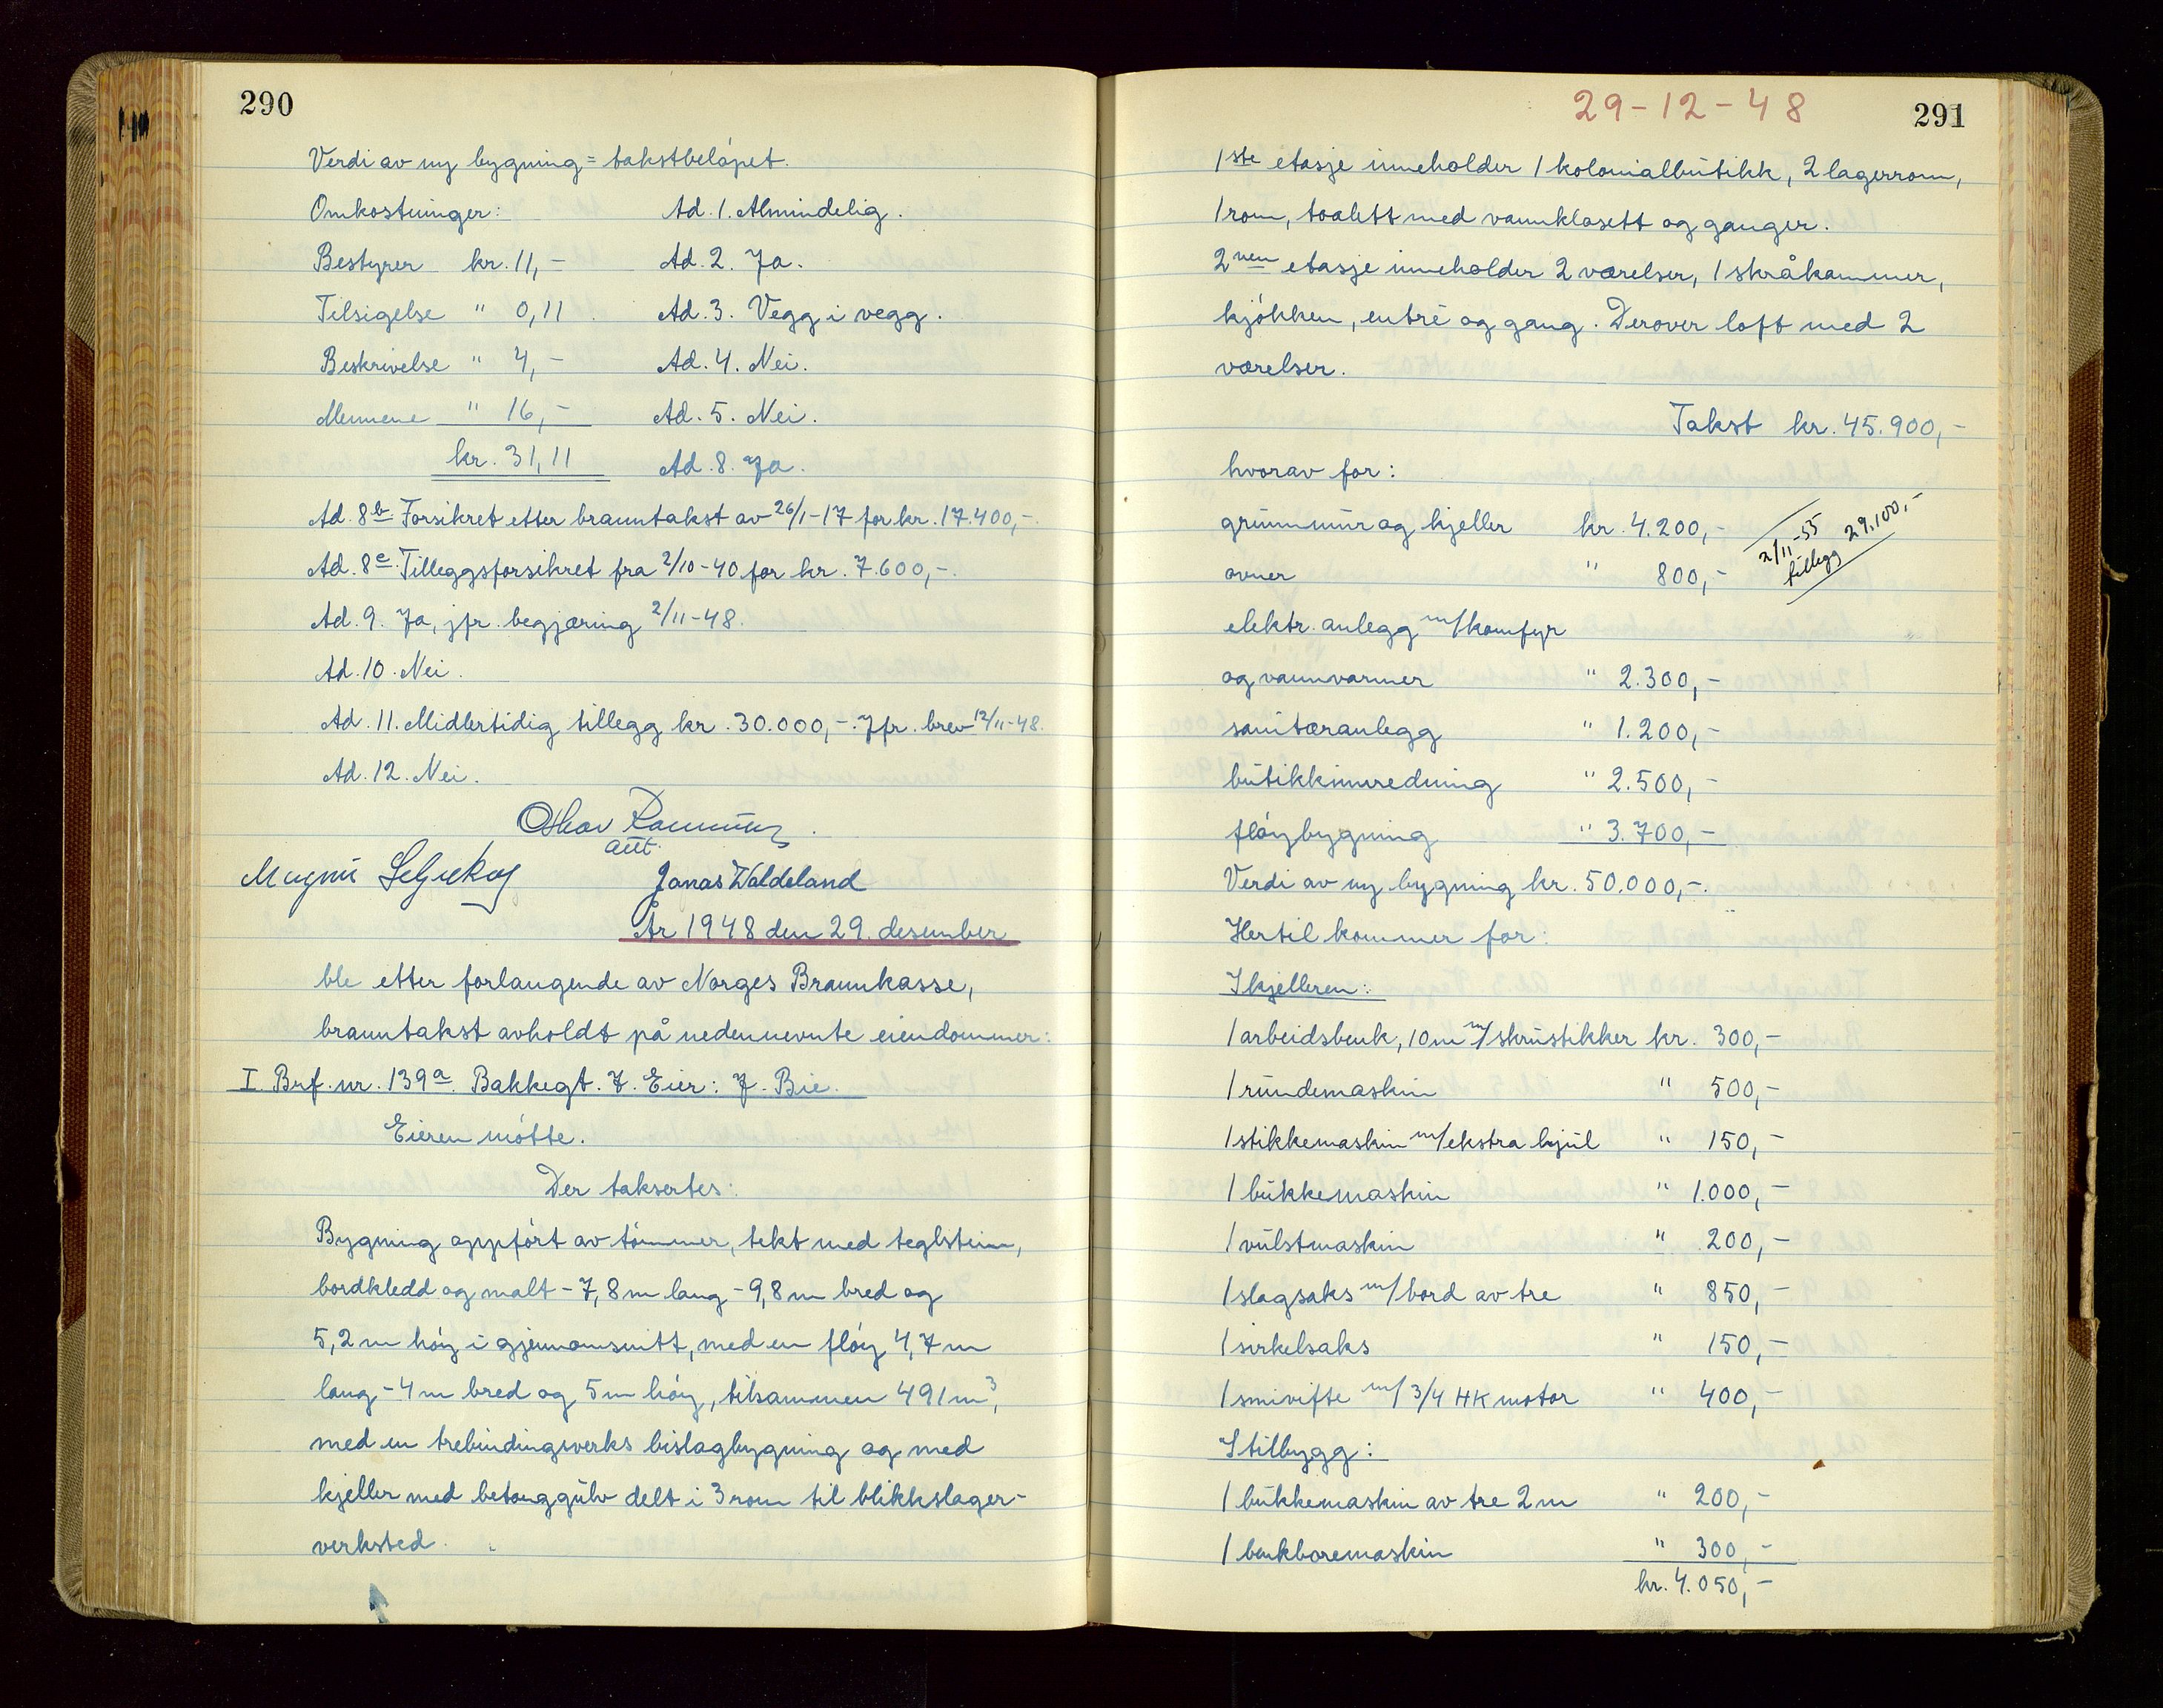 290
Verdi av ny bygning = takstbeløpet.
Omkostninger: Ad. 1. Almindelig.
Bestyrer kr. 11,- Ad. 2. Ja.
Tilsigelse " 0,11 Ad. 3. Vegg i vegg.
Beskrivelse " 4,- Ad. 4. Nei.
Mennene " 16,- Ad. 5. Nei.
kr. 31,11 Ad. 8. Ja.
Ad. 8b. Forsikret etter branntakst av 26/1-17 for kr. 17.400,-.
Ad. 8c. Tilleggsforsikret fra 2/10-40 for kr. 7.600,-.
Ad. 9. Ja, jfr. begjæring 2/11-48.
Ad. 10. Nei.
Ad. 11. Midlertidig tillegg kr. 30.000,-. Jfr. brev 12/11-48.
Ad. 12. Nei.
aut.
Magnus Jonas Waldeland
År 1948 den 29. desember
ble etter forlangende av Norges Brannkasse,
branntakst avholdt på nedennevnte eiendommer:
I. Brf. nr. 139a. Bakkegt. 7. Eier: J. Bie.
Eieren møtte.
Der taksertes:
Bygning oppført av tømmer, tekt med teglstein,
bordkledd og malt - 7,8 m lang - 9,8 m bred og
5,2 m høy i gjennomsnitt, med en fløy 4,7 m
lang - 4 m bred og 5 m høy, tilsammen 491 m3,
med en trebindingsverks bislagbygning og med
kjeller med betonggulv delt i 3 rom til blikkslager-
verksted.
29-12-48
291
1ste etasje inneholder 1 kolonialbutikk, 2 lagerrom,
1 rom, toalett med vannklosett og ganger.
2nen etasje inneholder 2 værelser, 1 skråkammer,
kjøkken, entré og gang. Derover loft med 2
værelser.
Takst kr. 45.900,-
hvorav for:
grunnmur og kjeller kr. 4.200,-
2/11-55 29.100,-
tillegg
ovner " 800,-
elektr. anlegg m/komfyr
og vannvarmer " 2.300,-
sanitæranlegg " 1.200,-
butikkinnredning " 2.500,-
fløybygning " 3.700,-
Verdi av ny bygning kr. 50.000,-.
Hertil kommer for:
I kjelleren:
1 arbeidsbenk, 10 m m/skrustikker kr. 300,-
1 rundemaskin " 500,-
1 stikkemaskin m/ekstra hjul " 150,-
1 bukkemaskin " 1.000,-
1 vulstmaskin " 200,-
1 slagsaks m/bord av tre " 850,-
1 sirkelsaks " 150,-
1 smivifte m/ 3/4 HK motor " 400,-
I tilbygg:
1 bukkemaskin av tre 2 m " 200,-
1 benkboremaskin " 300,-
kr. 4.050,-